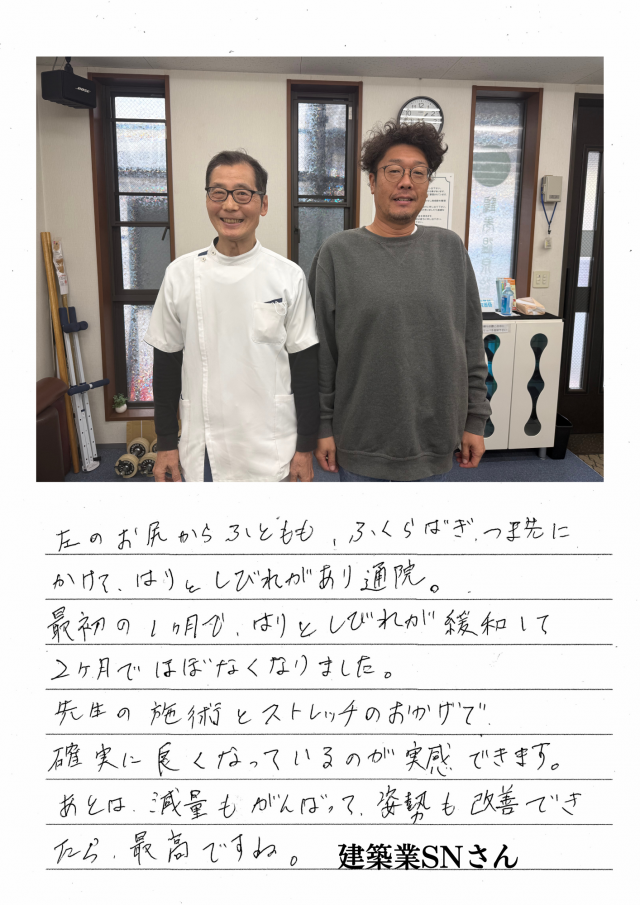 左のお尻からふともも、ふくらはぎ、つま先に
かけて、はりとしびれがあり通院。
最初の1ヶ月で、はりとしびれが緩和して
2ヶ月でほぼなくなりました。
先生の施術とストレッチのおかげで
確実に良くなっているのが実感できます。
あとは、減量もがんばって、姿勢も改善でき
たら、最高ですね。
建築業SNさん